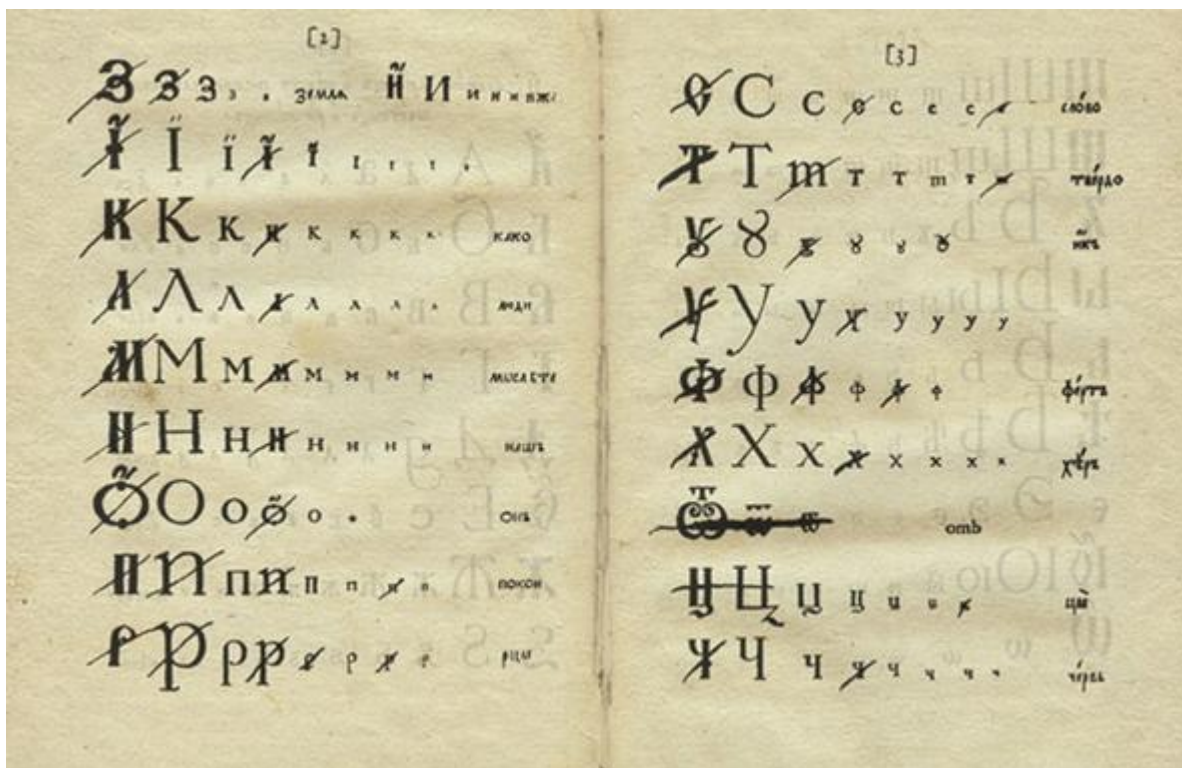 [2]
З З З з з земля Й И и и и иже
Ї Ї ї ї ї і і і і
К К к к к к к к како
Л Л л л л л л л люди
М М м м м м м м мислѣте
Н Н н н н н н н нашъ
О О о о о о онъ
П П п п п п п п покои
Р Р р р р р р р рцы
[3]
С С с с с с с с сло́во
Т Т т т т т т т тве́рдо
Ꙋ Ꙋ ꙋ ꙋ ꙋ ꙋ икъ
У У у у у у у у
Ф ф ф ф ф ф фе́ртъ
Х Х х х х х х х хѣръ
Ѿ ѿ ѿ отъ
Ц Ц ц ц ц ц ц цы
Ч Ч ч ч ч ч ч ч че́рвь